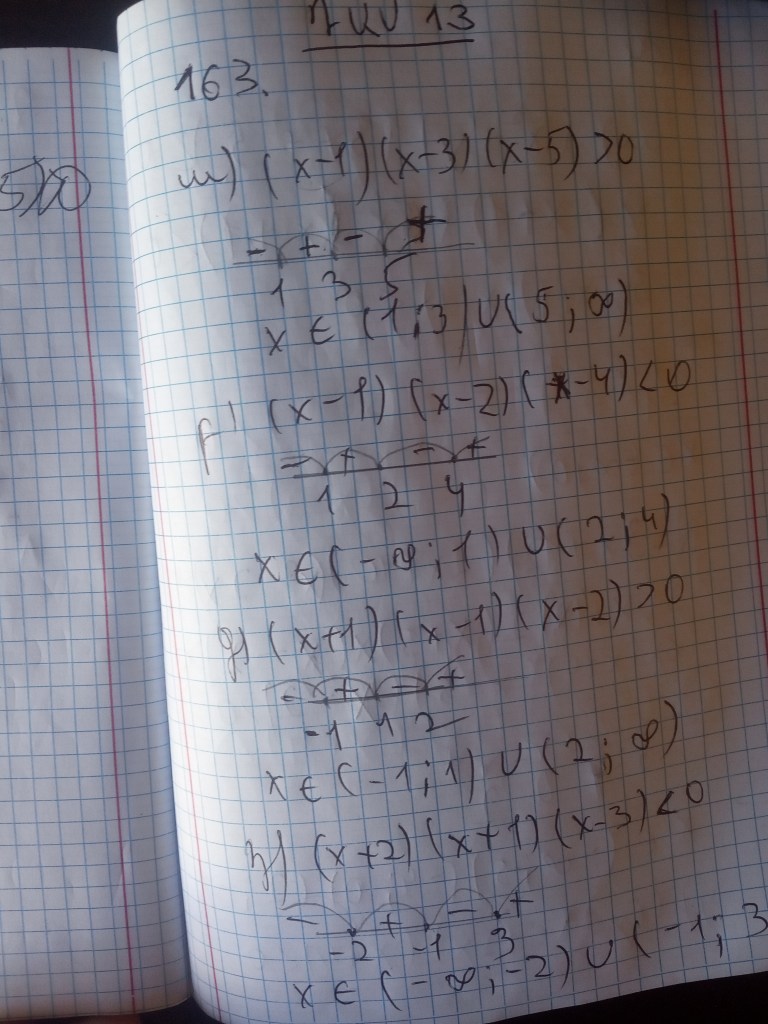 163.
(x-1)(x-3)(x-5)>0
- + - +
1 3 5
x ∈ (1;3)∪(5;∞)
(x-1)(x-2)(x-4)<0
- + - +
1 2 4
x∈(-∞;1)∪(2;4)
(x+1)(x-1)(x-2)>0
- + - +
-1 1 2
x∈(-1;1)∪(2;∞)
(x+2)(x+1)(x-3)<0
- + - +
-2 -1 3
x∈(-∞;-2)∪(-1;3